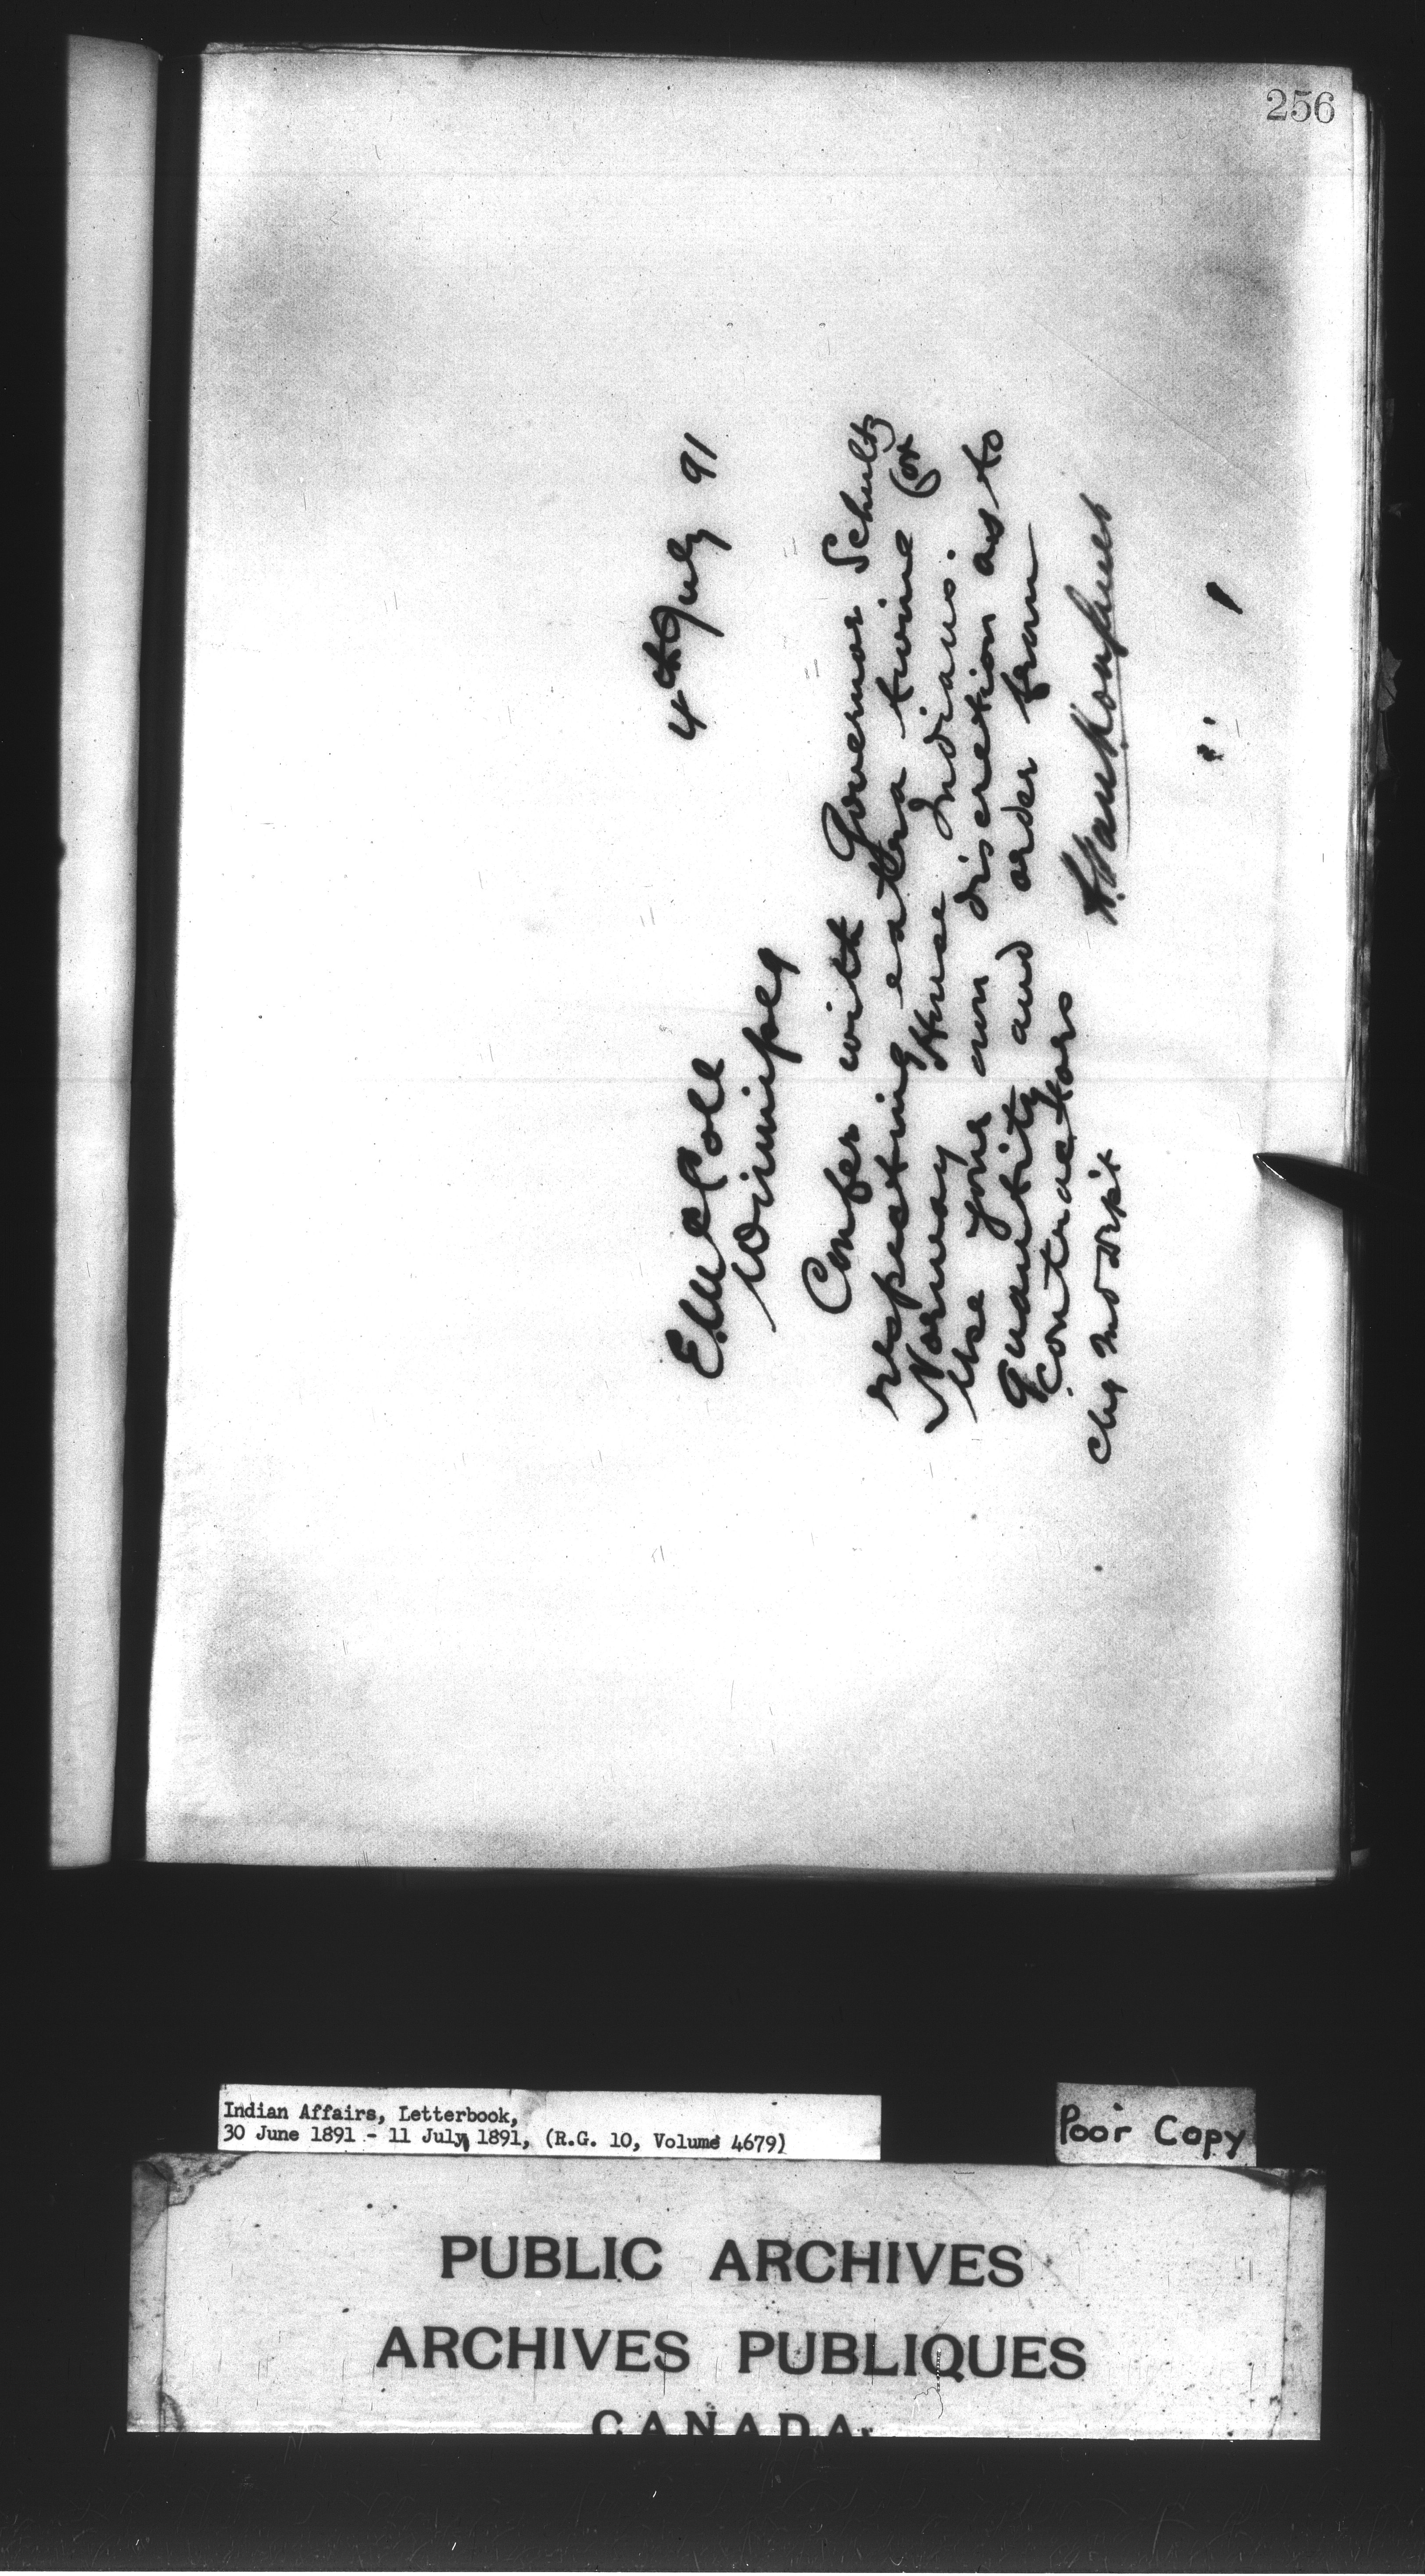 256
4th July 91
E. McColl
Winnipeg
Confer with Governor Schultz
respecting extra twine for
Norway House Indians.
Use your own discretion as to
quantity and order from
contractors
L. Vankoughnet
Chg  Dept
Indian Affairs, Letterbook,
30 June 1891 - 11 July, 1891, (R.G. 10, Volume 4679)
Poor Copy
PUBLIC ARCHIVES
ARCHIVES PUBLIQUES
CANADA